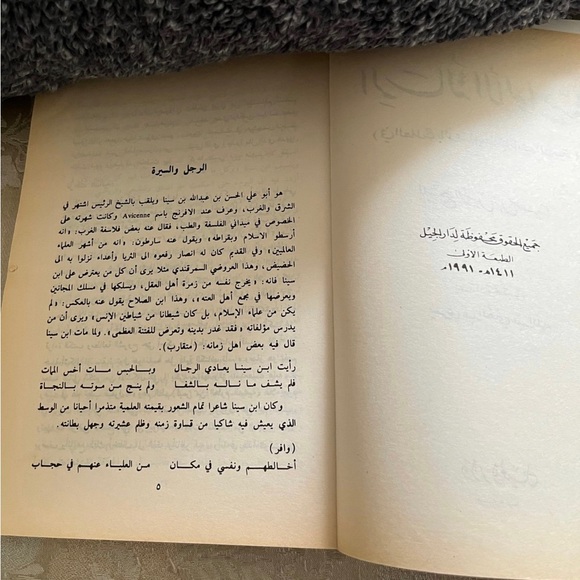 الرجل والسيرة
هو أبو علي الحسن بن عبدالله بن سينا ويلقب بالشيخ الرئيس اشتهر في
الشرق والغرب، وعرف عند الافرنج باسم Avicenne وكانت شهرته على
الخصوص في ميداني الفلسفة والطب، فقال عنه بعض فلاسفة الغرب: «انه
أرسطو الاسلام وبقراطه» ويقول عنه سارطون: «انه من أشهر العلماء
العالميين» وفي القديم كان له انصار رفعوه الى الثريا وأعداء نزلوا به الى
الحضيض، وهذا العروضي السمرقندي مثلا يرى أن كل من يعترض على ابن
سينا فانه: «يخرج نفسه من زمرة أهل العقل، ويسلكها في مسلك المجانين
ويعرضها في مجمع أهل العته»، وهذا ابن الصلاح يقول عنه بالعكس: «لم
يكن من علماء الإسلام، بل كان شيطانا من شياطين الإنس» ويرى أن من
يدرس مؤلفاته « فقد غدر بدينه وتعرض للفتنة العظمى». ولما مات ابن سينا
قال فيه بعض اهل زمانه: (متقارب).
رأيت ابن سينا يعادي الرجال وبالحبس مات أخس الممات
فلم يشف ما ناله بالشفا ولم ينج من موته بالنجاة
وكان ابن سينا شاعرا تمام الشعور بقيمته العلمية متذمرا أحيانا من الوسط
الذي يعيش فيه شاكيا من قساوة زمنه وظلم عشيرته وجهل بطانته.
(وافر)
أخالطهم ونفسي في مكان من العلياء عنهم في حجاب
٥
جميع الحقوق محفوظة لدار الجيل
الطبعة الأولى
١٤١١هـ - ١٩٩١م